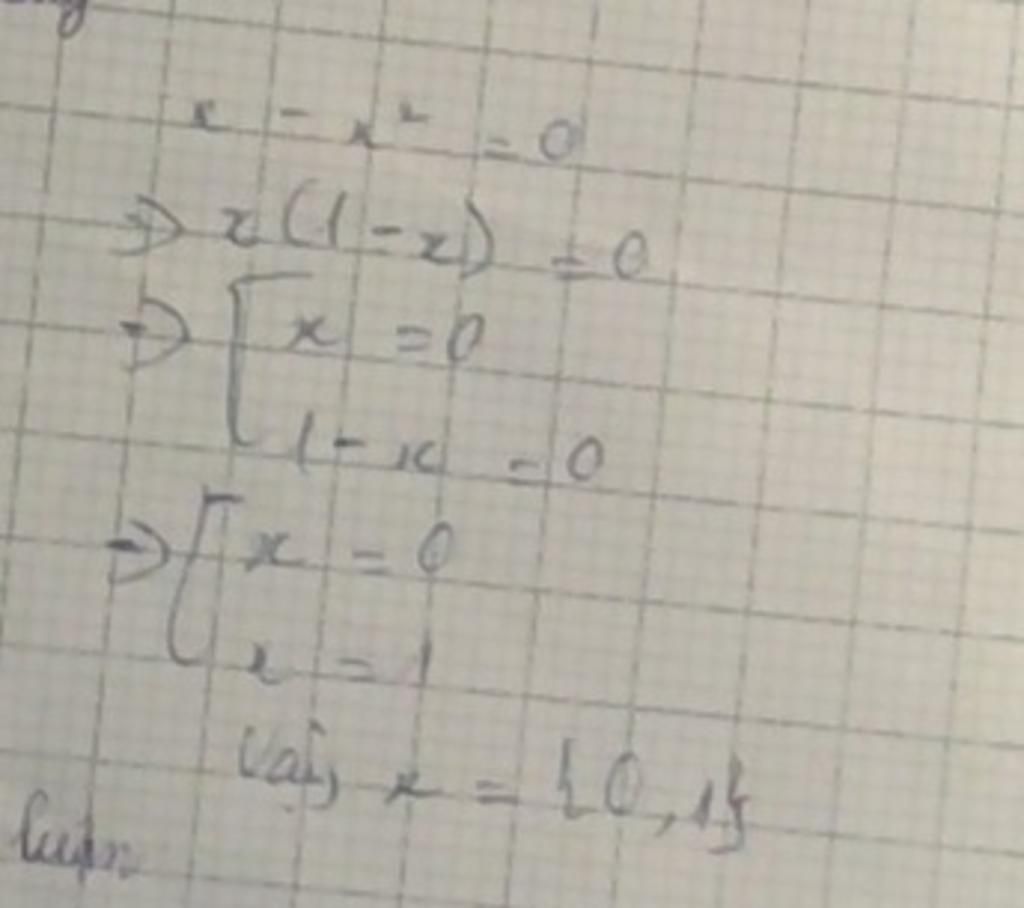 x - x² = 0
=> x(1-x) = 0
=> [ x = 0
1 - x = 0
=> [ x = 0
x = 1
Vậy x = {0, 1}
luận